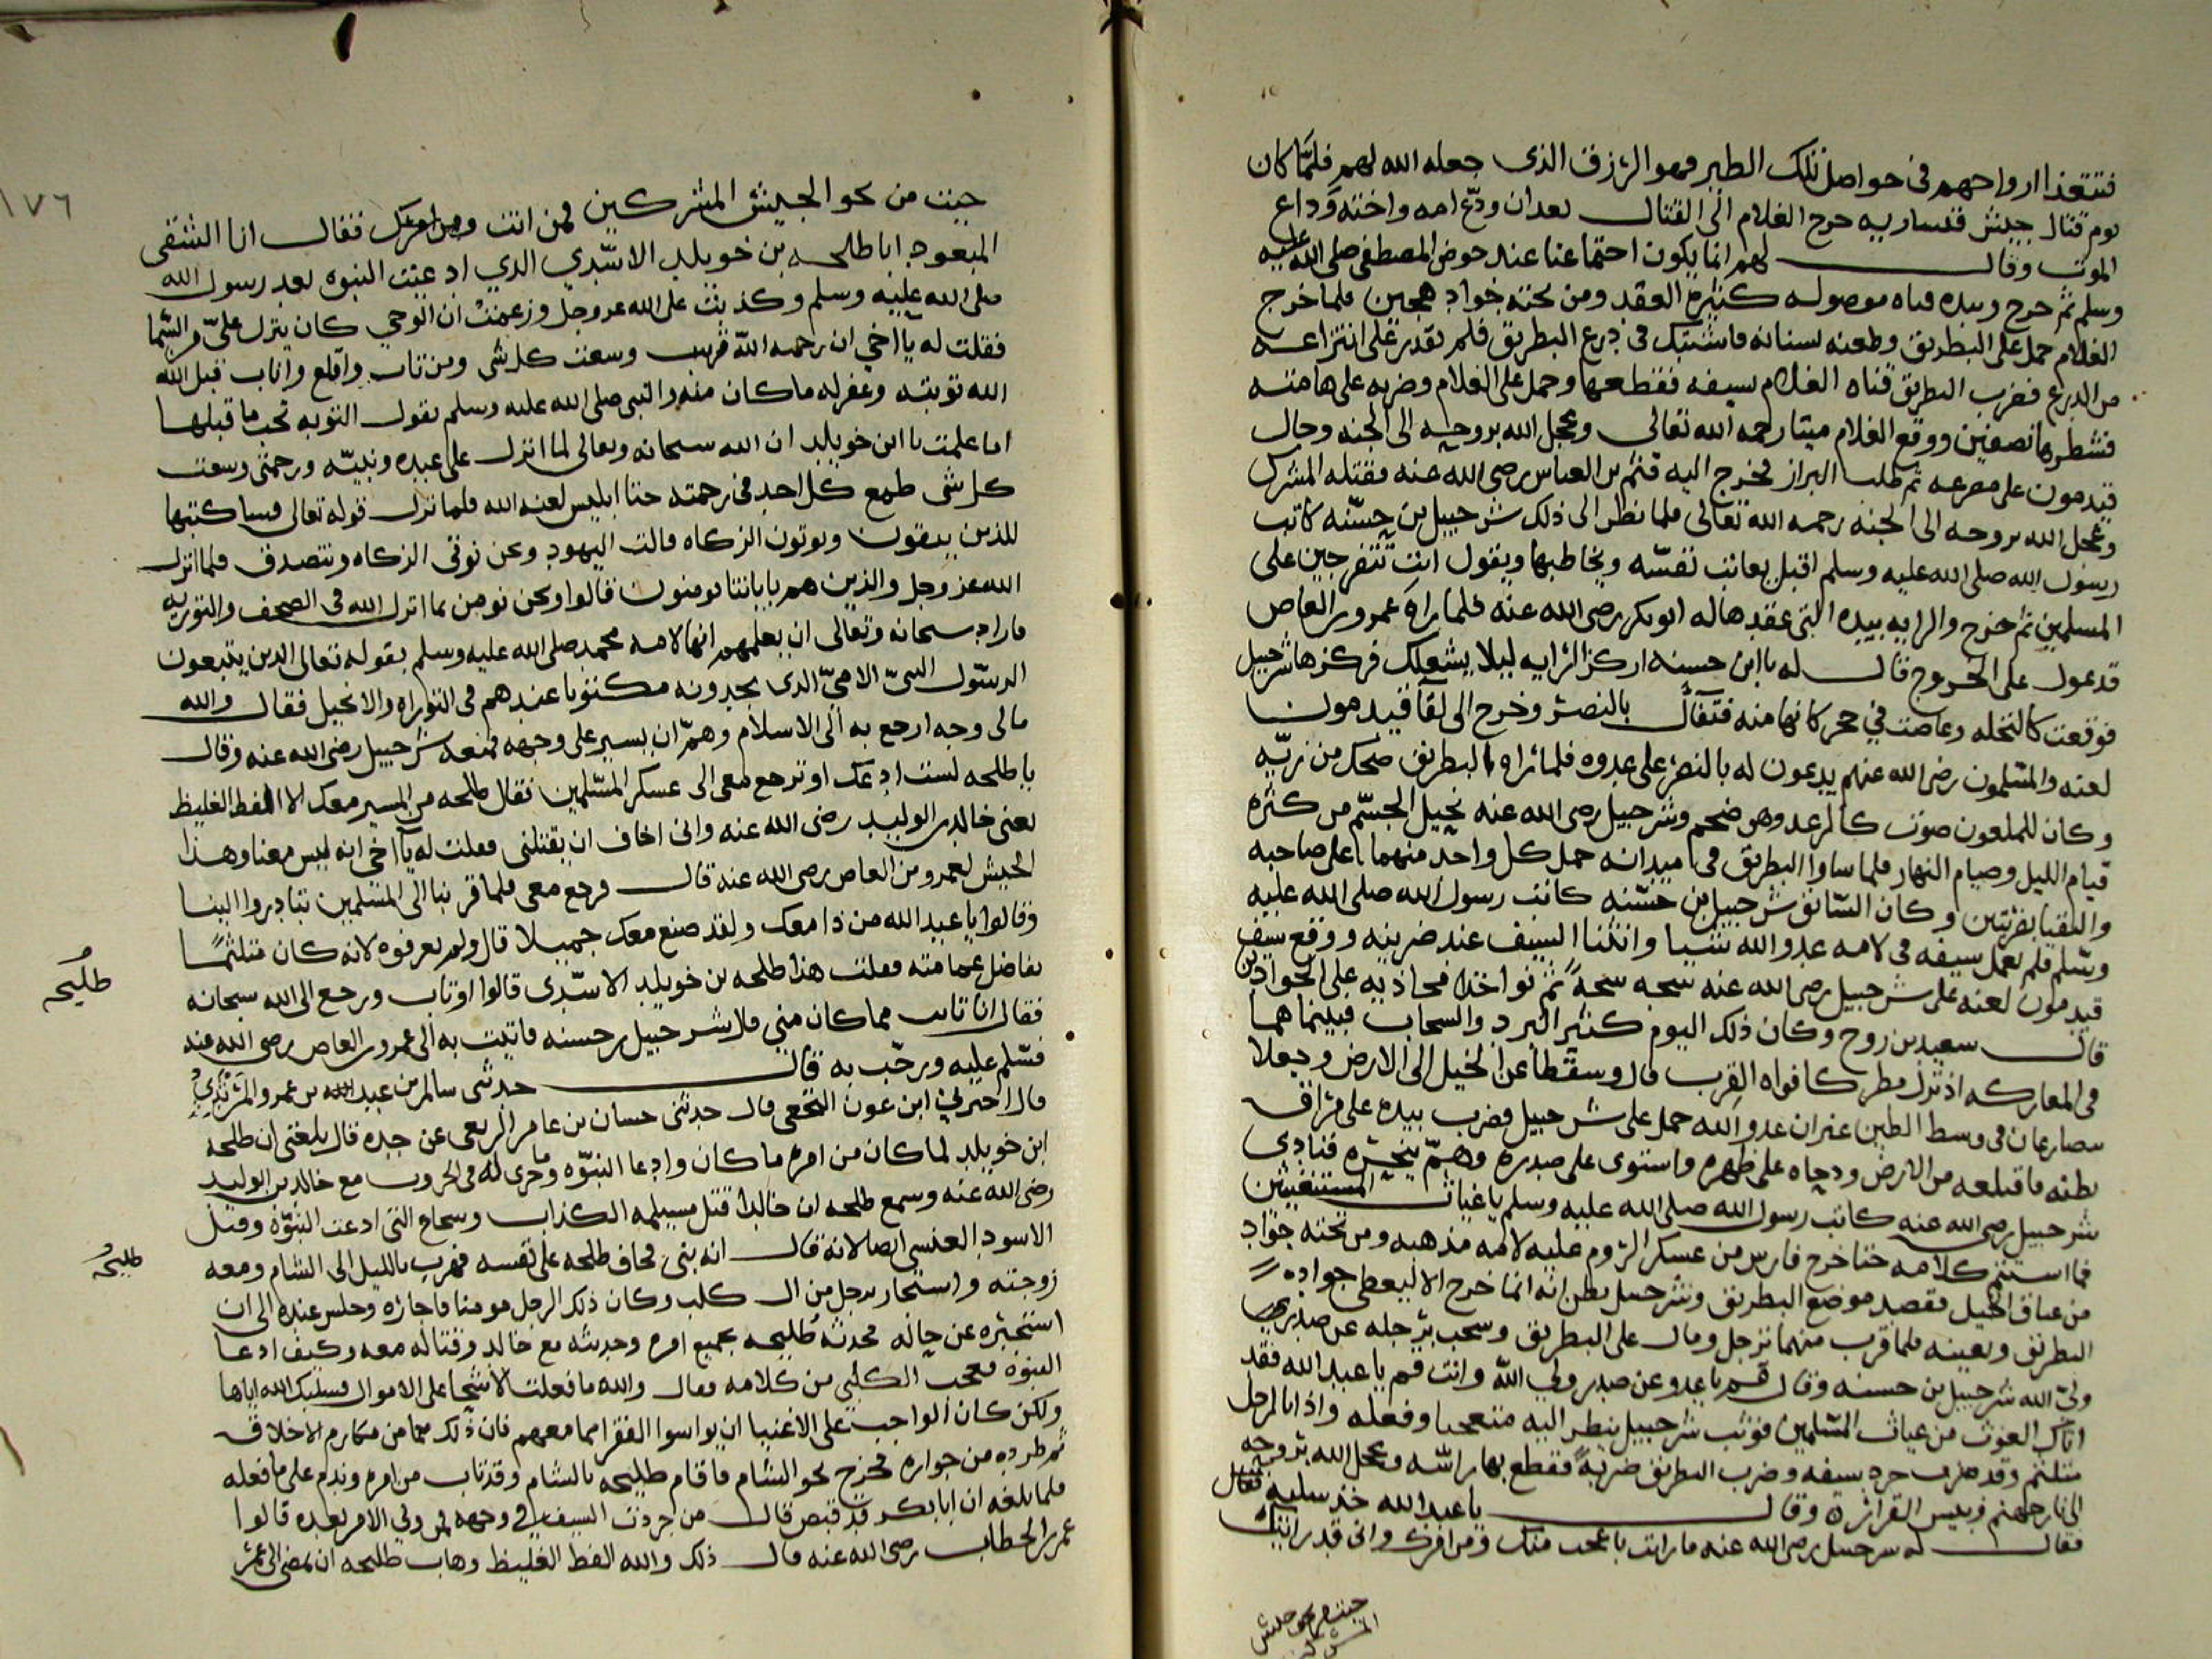 فتتغذا ارواحهم في حواصل تلك الطير فهو الرزق الذي جعله الله لهم فلمّا كان
يوم قتال جيش قيساريه خرج الغلام الى القتال بعد ان ودّع امه واخته وداع
الموت وقال لهم انما يكون اجتماعنا عند حوض المصطفى صلى الله عليه
وسلم ثم خرج وبيده قناه موصوله كثيره العقد ومن تحته جواد هجين فلما خرج
الغلام حمل على البطريق وطعنه بسنانه فاشتبك في درع البطريق فلم يقدر على انتزاعه
من الدرع فضرب البطريق قناه الغلام بسيفه فقطعها وحمل على الغلام وضربه على هامته
فشطرها نصفين ووقع الغلام ميتا رحمه الله تعالى وعجل الله بروحه الى الجنه وجال
قيدمون على مصرعه ثم طلب البراز فخرج اليه قثم بن العباس رضى الله عنه فقتله المشرك
وعجل الله بروحه الى الجنه رحمه الله تعالى فلما نظر الى ذلك شرحبيل بن حسنه كاتب
رسول الله صلى الله عليه وسلم اقبل يعاتب نفسه ويخاطبها ويقول انت تتفرجين على
المسلمين ثم خرج والرايه بيده التى عقدها له ابو بكر رضى الله عنه فلما راه عمرو بن العاص
قد عول على الخروج قال له يا ابن حسنه اركز الرايه ليلا يشغلك فركزها شرحبيل
فوقعت كالنخله وغاصت في حجر كانها منه فتفأل بالنصر وخرج الى لقآ قيدمون
لعنه والمسلمون رضى الله عنهم يدعون له بالنصر على عدوه فلما راه البطريق ضحك من زيّه
وكان للملعون صوت كالرعد وهو ضخم وشرحبيل رضى الله عنه نحيل الجسم من كثرة
قيام الليل وصيام النهار فلما ساوا البطريق في ميدانه حمل كل واحد منهما على صاحبه
والتقيا بضربتين وكان السابق شرحبيل بن حسنه كاتب رسول الله صلى الله عليه
وسلم فلم يعمل سيفه في لامه عدو الله شيا وانثنا السيف عند ضربته ووقع سيف
قيدمون لعنه على شرحبيل رضى الله عنه شجه شجة ثم تواخذا فحاذيه على الجوادين
قال سعيد بن روح وكان ذلك اليوم كثير البرد والسحاب فبينما هما
في المعاركه اذ نزل مطر كافواه القرب قال وسقطا عن الخيل الى الارض وجعلا
يتصارعان في وسط الطين غير ان عدو الله حمل على شرحبيل فضرب بيده على مراق
بطنه فاقتلعه من الارض ودحاه على ظهره واستوى على صدره وهمّ ينحره فنادى
شرحبيل رضى الله عنه كاتب رسول الله صلى الله عليه وسلم يا غياث المستغيثين
فما استتم كلامه حتا خرج فارس من عسكر الروم عليه لامه مذهبه ومن تحته جواد
من عتاق الخيل فقصد موضع البطريق وشرحبيل يظن انه انما خرج الا ليعطى جواده
البطريق ويعينه فلما قرب منهما ترجل ومال على البطريق وسحب برجله عن صدر
ولىّ الله شرحبيل بن حسنه وقال قم يا عدو عن صدر ولي الله وانت قم يا عبد الله فقد
اتاك الغوث من غياث المسلمين فوثب شرحبيل ينظر اليه متعجبا وفعله واذا بالرجل
متلثم وقد جرد سيفه وضرب البطريق ضربة فقطع بها راسه وعجل الله بروحه
الى نار جهنم وبيس القرار وقال يا عبد الله خذ سلبه فقال
فقال له شرحبيل رضى الله عنه ما رايت باعجب منك ومن امرك وانى قد رايتك
جيت من نحو جيش
المشركين
١٧٦
جيت من نحو الجيش المشركين فمن انت وما امرك فقال انا الشقى
المبعود انا طلحه بن خويلد الاسدي الدي ادعيت النبوه بعد رسول الله
صلى الله عليه وسلم وكذبت على الله عز وجل وزعمت ان الوحي كان ينزل علىّ من السما
فقلت له يا اخي ان رحمه اللّه قريب وسعت كل شى ومن تاب واقلع واناب قبل الله
الله توبته وغفر له ما كان منه والنبى صلى الله عليه وسلم يقول التوبه تجب ما قبلها
اما علمت يا ابن خويلد ان الله سبحانه وتعالى لما انزل على عبده ونبيّه ورحمتى وسعت
كل شى طمع كل احد في رحمته حتا ابليس لعنه الله فلما نزل قوله تعالى فساكتبها
للذين يتقون ويوتون الزكاه قالت اليهود ونحن نوتى الزكاه ونتصدق فلما انزل
الله عز وجل والذين هم باياتنا يومنون قالوا ونحن نومن بما انزل الله في الصحف والتوريه
فاراد سبحانه وتعالى ان يعلمهم انها لامه محمد صلى الله عليه وسلم بقوله تعالى الدين يتبعون
الرسول النبىّ الامىّ الذى يجدونه مكتوبا عندهم في التوراه والانجيل فقال والله
مالى وجه ارجع به الى الاسلام وهمّ ان يسير على وجهه فمنعه شرحبيل رضى الله عنه وقال
يا طلحه لست ادعك او ترجع معى الى عسكر المسلمين فقال طلحه من المسير معك الا الفظ الغليظ
يعنى خالد بن الوليد رضى الله عنه وانى اخاف ان يقتلنى فعلت له يآ اخى انه ليس معنا وهذا
الجيش لعمرو بن العاص رضى الله عنه قال فرجع معى فلما قربنا الى المسلمين تبادروا الينا
وقالوا يا عبد الله من ذا معك ولقد صنع معك جميلا قال ولم يعرفوه لانه كان متلثمًا
بفاضل عمامته فعلت هذا طلحه بن خويلد الاسدى قالوا اوتاب ورجع الى الله سبحانه
فقال انا تايب مما كان مني قال شرحبيل بن حسنه فاتيت به الى عمرو بن العاص رضى الله عنه
فسلم عليه ورحّب به قال حدثنى سالم بن عبد الله بن عمرو
قال اخبرني ابن عون النخعى قال حدثنى حسان بن عامر الربعى عن جده قال بلغنى ان طلحه
ابن خويلد لما كان من امره ما كان وادعا النبوّه وما جرى له في الحروب مع خالد بن الوليد
رضى الله عنه وسمع طلحه ان خالدا قتل مسيلمه الكذاب وسجاح التى ادعت النبوّه وقتل
الاسود العنسى ايضا لانه قال انه بنى فخاف طلحه على نفسه فهرب بالليل الى الشام ومعه
زوجته واستجار برجل من ال كلب وكان ذلك الرجل مومنا فاجاره وجلس عنده الى ان
استخبره عن حاله فحدثه طليحه بجميع امره وحديثه مع خالد وقتاله معه وكيف ادعا
النبوه فعجب الكلبي من كلامه وقال والله ما فعلت الا شحا على الاموال فسلبك الله اياها
ولكن كان الواجب على الاغنيا ان يواسوا الفقرا مما معهم فان ذلك مما من مكارم الاخلاق
ثم طرده من جواره فخرج نحو الشام فاقام طليحه بالشام وقد تاب من امره وندم على ما فعله
فلما بلغه ان ابا بكر قد قبض قال من جردت السيف في وجهه فمن ولي الامر بعده قالوا
عمر بن الخطاب رضى الله عنه قال ذلك والله الفظ الغليظ وهاب طلحه ان يمضى الى عمر
طليحه
طليحه